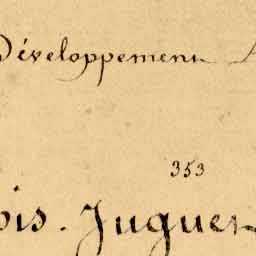 Développement
353
ois. Juguer